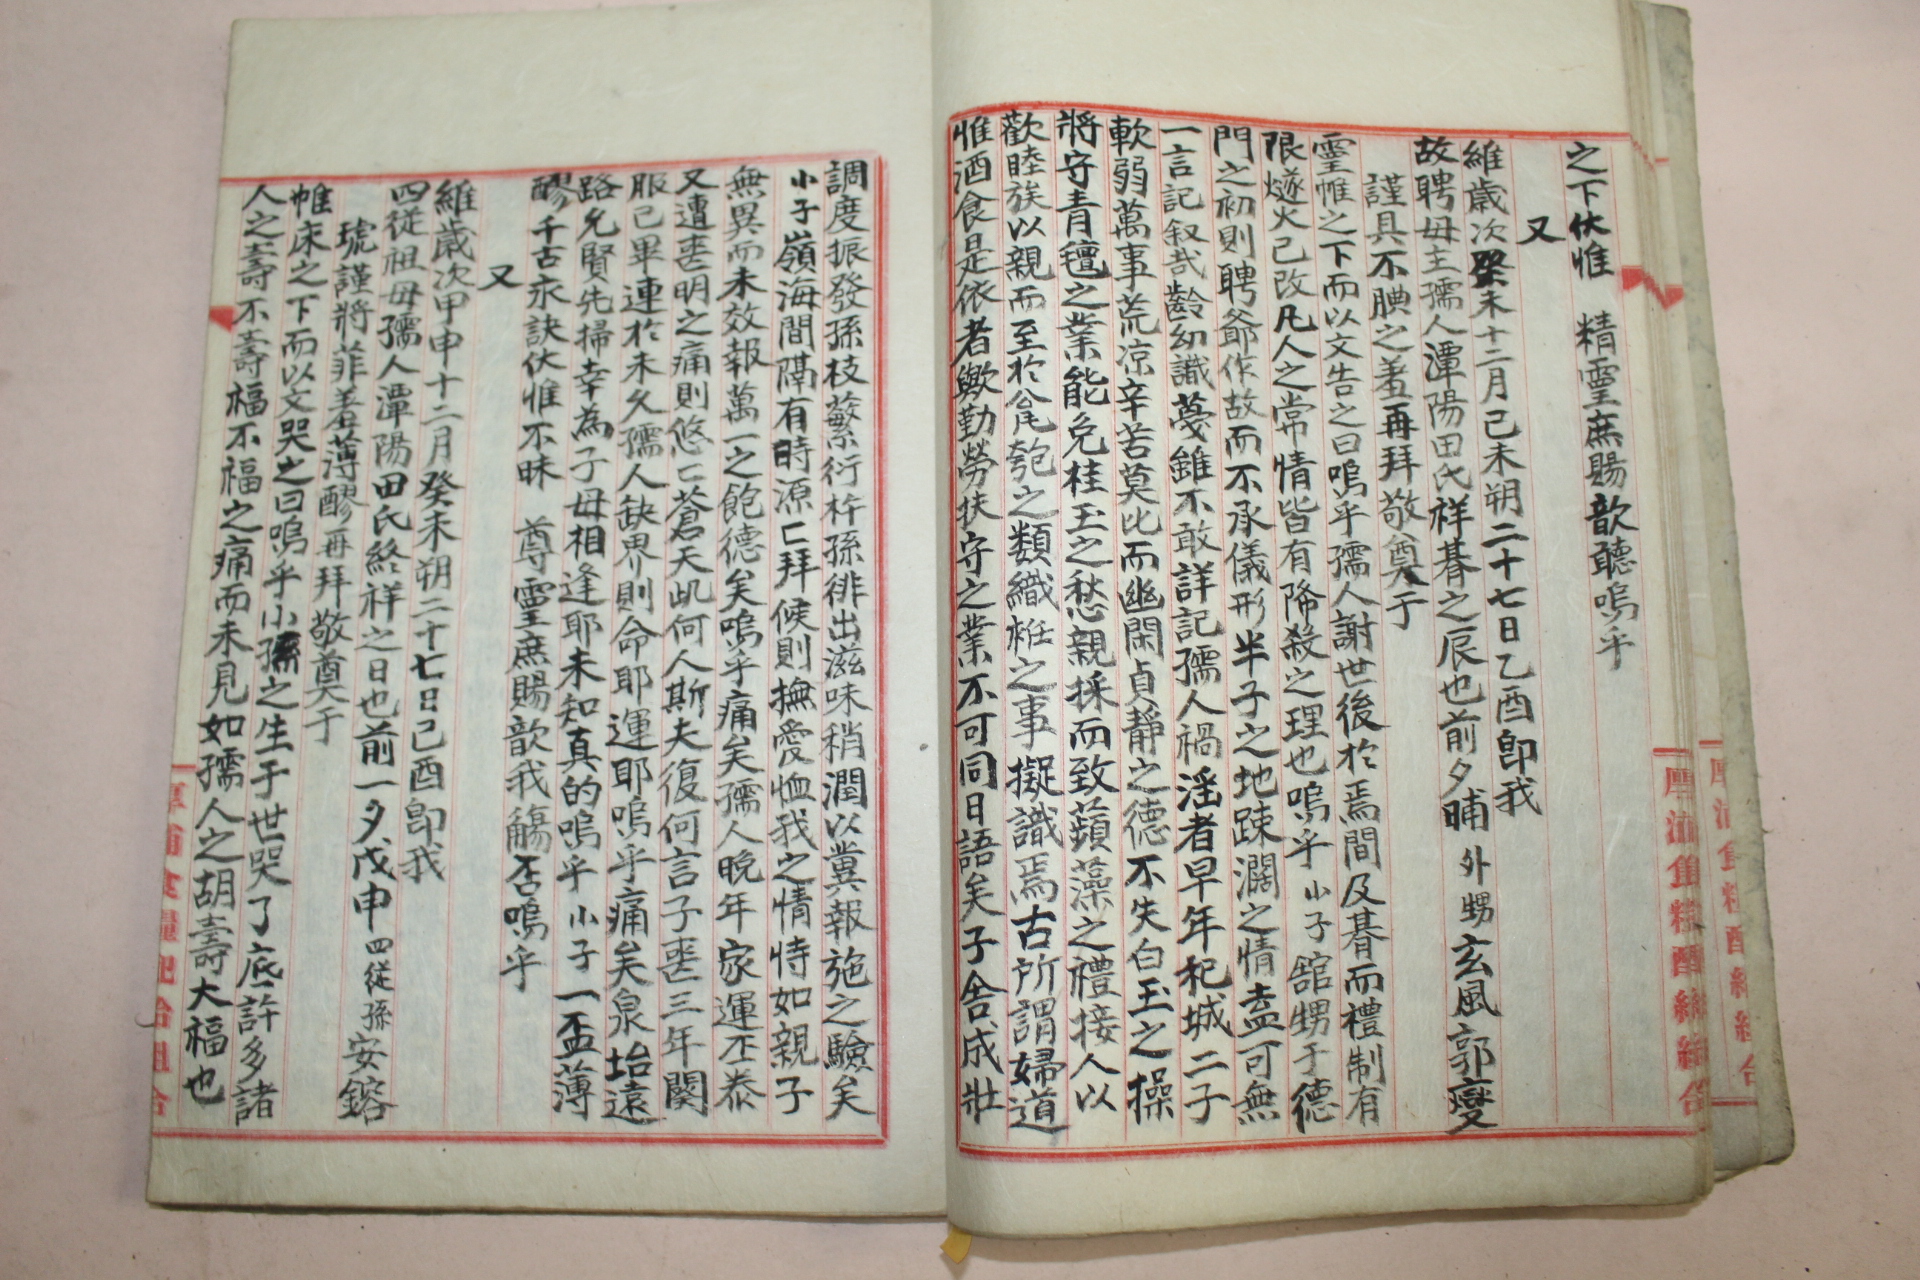 之下伏惟 精靈庶賜歆聽嗚乎
又
維歲次癸未十二月己未朔二十七日乙酉卽我
故聘母主孺人潭陽田氏祥朞之辰也前夕晡外甥玄風郭燮
謹具不腆之羞再拜敬奠于
靈帷之下而以文告之曰嗚乎孺人謝世後於焉間及朞而禮制有
限燧火已改凡人之常情皆有降殺之理也嗚乎小子舘甥于德
門之初則聘爺作故而不承儀形半子之地踈濶之情盍可無
一言記叙哉齡幼識蔑雖不敢詳記孺人禍滛者早年杞城二子
軟弱萬事荒凉辛苦莫比而幽閑貞靜之德不失白玉之操
將守青氊之業能免桂玉之愁親採而致蘋藻之禮接人以
歡睦族以親而至於瓮匏之類織紝之事擬識焉古所謂婦道
惟酒食是依者歟勤勞扶守之業不可同日語矣子舍成壯
調度振發孫枝蘩衍杵孫徘出滋味稍潤以冀報施之驗矣
小子嶺海間隔有時源亡拜候則撫愛恤我之情恃如親子
無異而未效報萬一之飽德矣嗚乎痛矣孺人晚年家運丕泰
又遭丧明之痛則悠亡蒼天此何人斯夫復何言子丧三年関
服已畢連於未久孺人缺界則命耶運耶嗚乎痛矣泉坮遠
路允賢先掃幸為子母相逢耶未知真的嗚乎小子一盃薄
醪千古永訣伏惟不昧 尊靈庶賜歆我觴否嗚乎
又
維歲次甲申十二月癸未朔二十七日己酉卽我
四從祖母孺人潭陽田氏終祥之日也前一夕戊申四從孫安鎔
琥謹將菲羞薄醪再拜敬奠于
帷床之下而以文哭之曰嗚乎小孫之生于世哭了底許多諸
人之壽不壽福不福之痛而未見如孺人之胡壽大福也